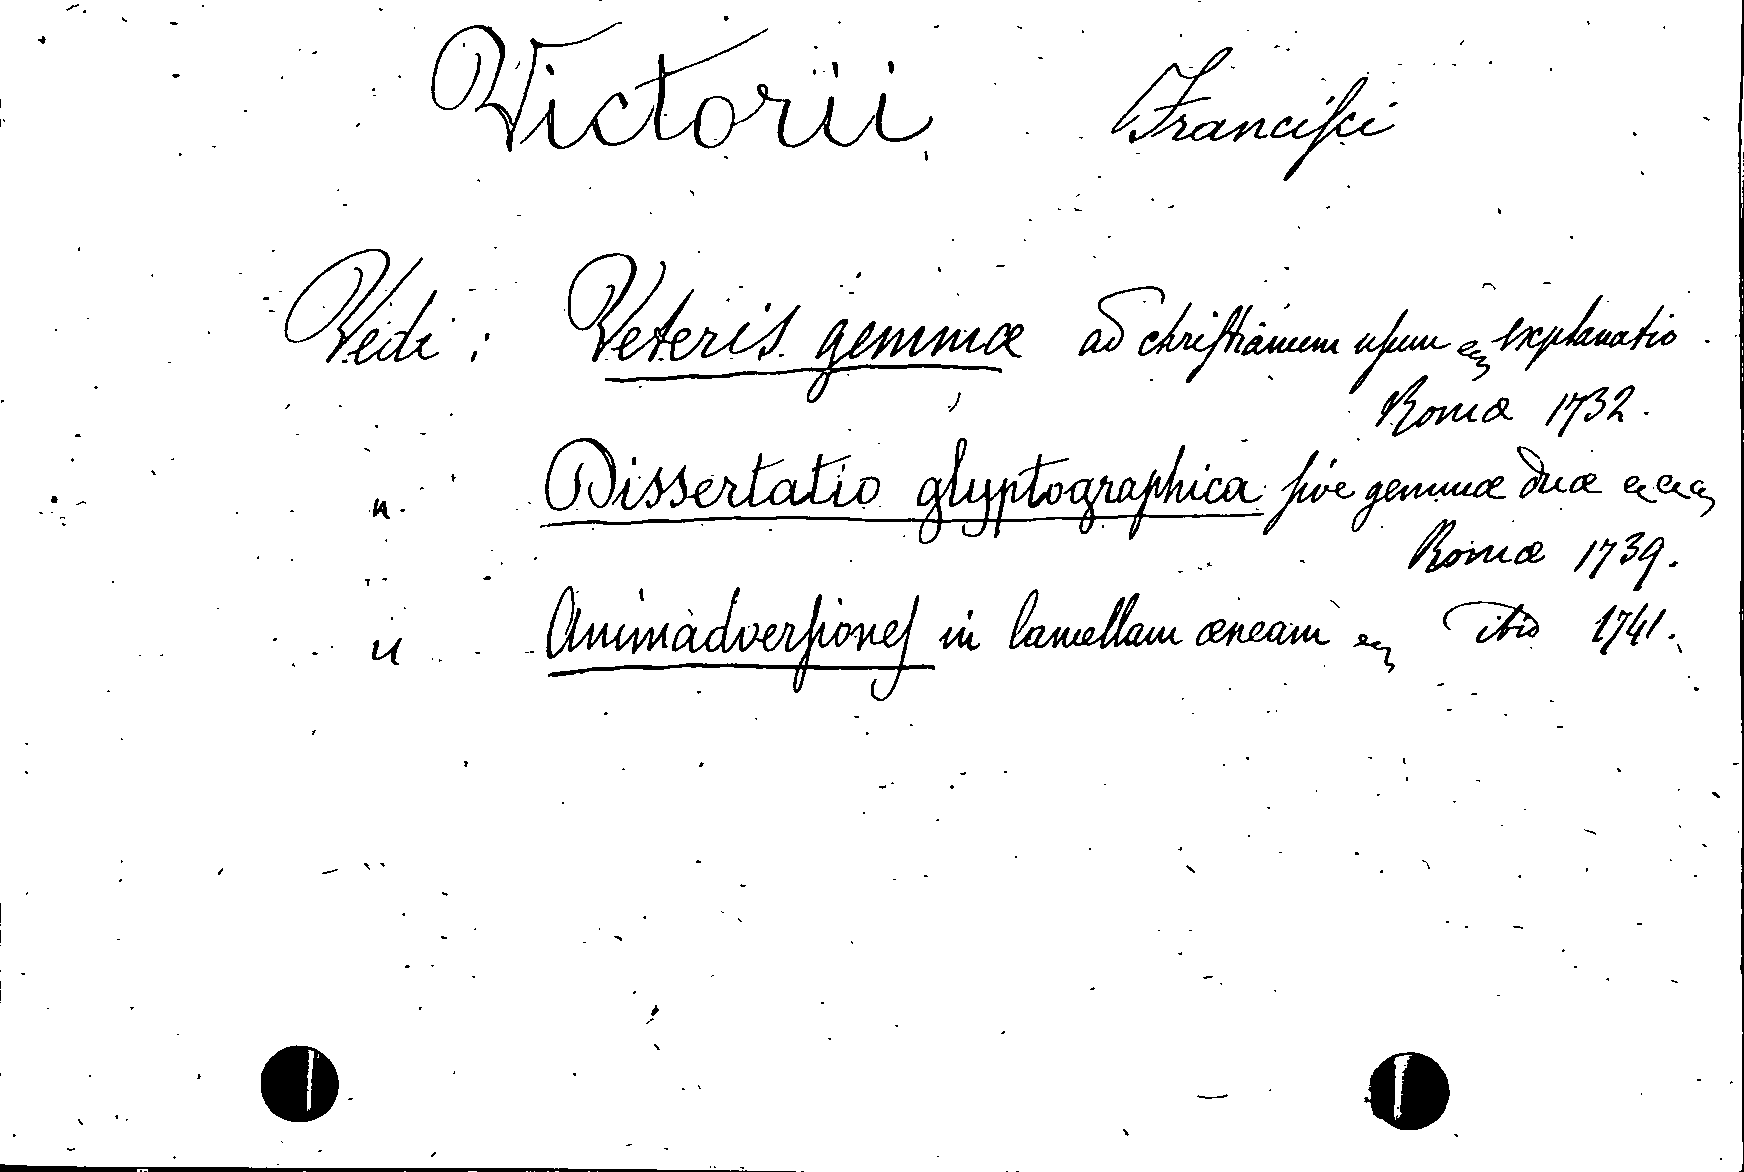 Victorii Franciſci
Vedi: Veteris gemmæ ad chriſtianum uſum ec explanatio.
Romæ 1732.
" Dissertatio glyptographica ſive gemmæ duæ ececec
Romæ 1739.
" Animadverſiones in lamellam æneam ec ibid 1741.